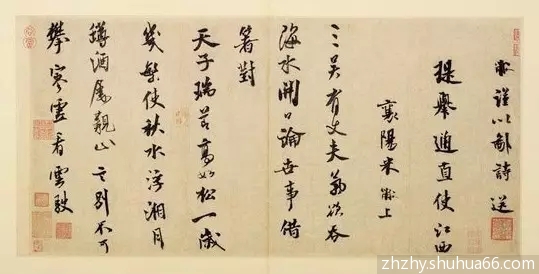 黻謹以鄙詩送
提舉通直使江西
襄陽米黻上
三吳有丈夫氣欲吞
海水開口論世事借
箸對
天子瑞如松一歲
幾繁使秋水浮湘月
酒屬觀山言別不可
攀寒雲看雲駛
zhzhy.shuhua66.com